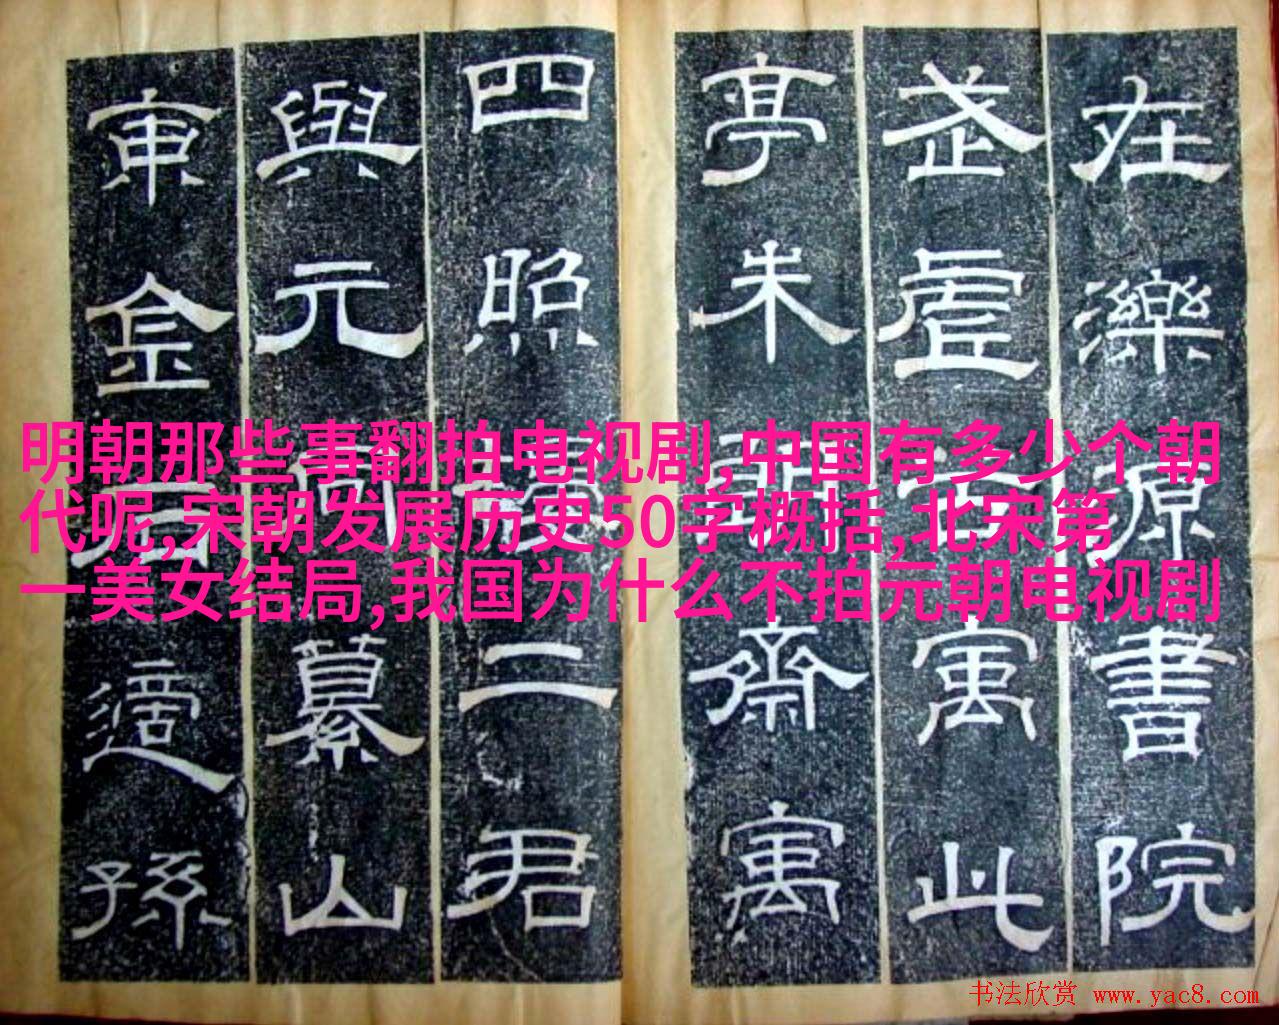 明朝那些事翻拍电视剧,中国有多少个朝
代呢,宋朝发展历史50字概括,北宋第
一美女结局,我国为什么不拍元朝电视剧
在濼源書院
武虛谷寓此
亭朱朗齋寓
四照樓二君
與元同纂山
東金石適孫
书法欣赏 www.yac8.com